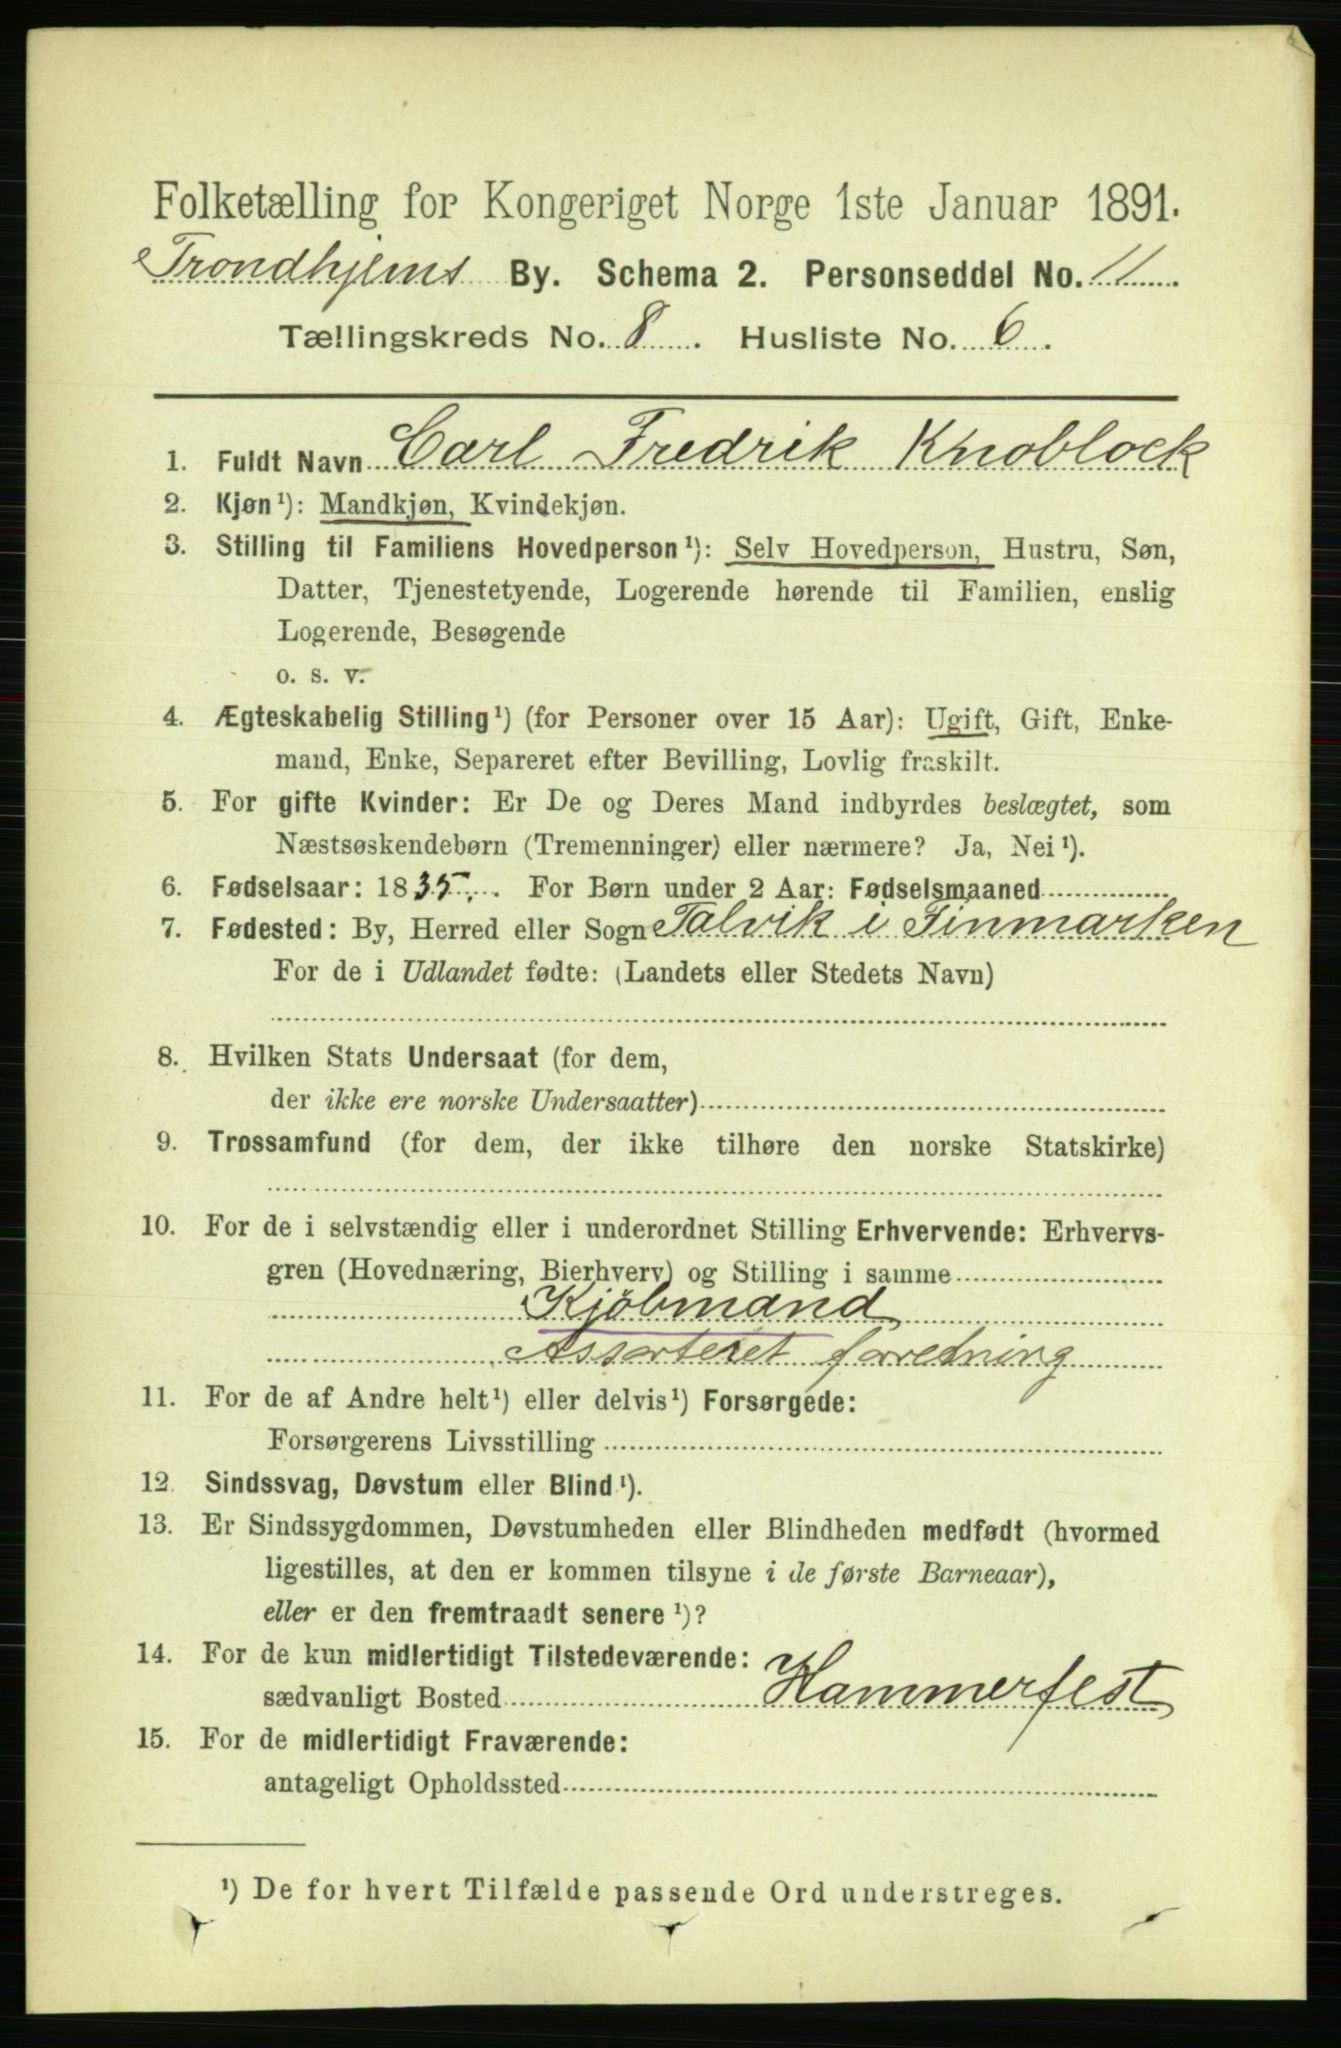 Folketælling for Kongeriget Norge 1ste Januar 1891.
Trondhjems By. Schema 2. Personseddel No. 11
Tællingskreds No. 8. Husliste No. 6.
1. Fuldt Navn Carl Fredrik Knoblock
2. Kjøn¹): Mandkjøn, Kvindekjøn.
3. Stilling til Familiens Hovedperson¹): Selv Hovedperson, Hustru, Søn,
Datter, Tjenestetyende, Logerende hørende til Familien, enslig
Logerende, Besøgende
o. s. v.
4. Ægteskabelig Stilling¹) (for Personer over 15 Aar): Ugift, Gift, Enke-
mand, Enke, Separeret efter Bevilling, Lovlig fraskilt.
5. For gifte Kvinder: Er De og Deres Mand indbyrdes beslægtet, som
Næstsøskendebørn (Tremenninger) eller nærmere? Ja, Nei¹).
6. Fødselsaar: 1835. For Børn under 2 Aar: Fødselsmaaned
7. Fødested: By, Herred eller Sogn Talvik i Finmarken
For de i Udlandet fødte: (Landets eller Stedets Navn)
8. Hvilken Stats Undersaat (for dem,
der ikke ere norske Undersaatter)
9. Trossamfund (for dem, der ikke tilhøre den norske Statskirke)
10. For de i selvstændig eller i underordnet Stilling Erhvervende: Erhvervs-
gren (Hovednæring, Bierhverv) og Stilling i samme
Kjöbmand
Assorteret forretning
11. For de af Andre helt¹) eller delvis¹) Forsørgede:
Forsørgerens Livsstilling
12. Sindssvag, Døvstum eller Blind¹).
13. Er Sindssygdommen, Døvstumheden eller Blindheden medfødt (hvormed
ligestilles, at den er kommen tilsyne i de første Barneaar),
eller er den fremtraadt senere¹)?
14. For de kun midlertidigt Tilstedeværende:
sædvanligt Bosted Hammerfest
15. For de midlertidigt Fraværende:
antageligt Opholdssted
¹) De for hvert Tilfælde passende Ord understreges.